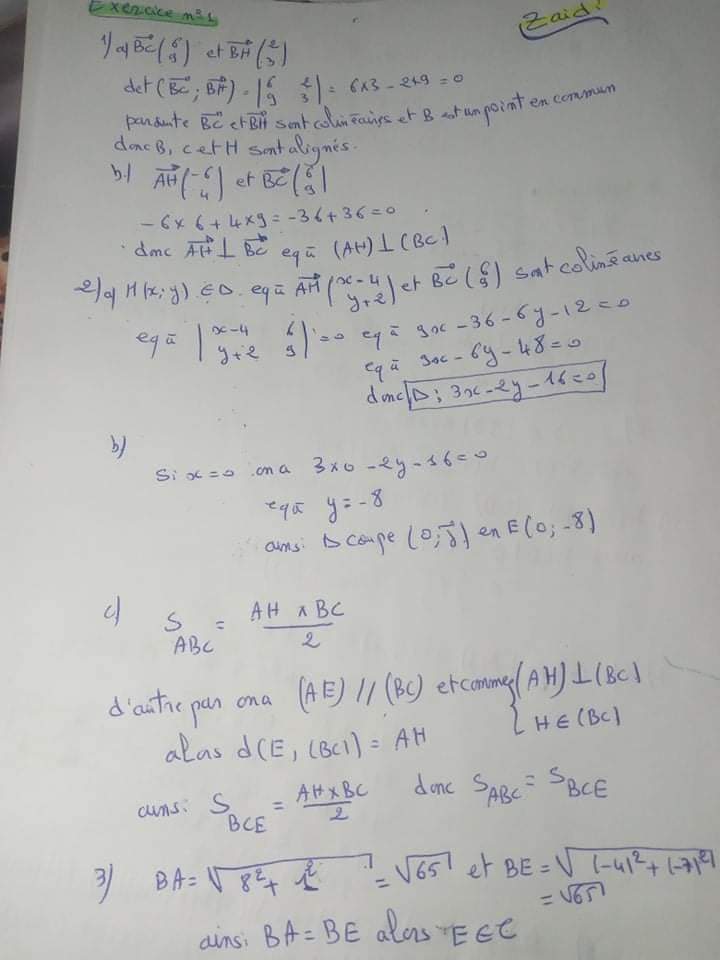 Exercice n°1
Zaidi
1) a) BC⃗ (6 9) et BH⃗ (2 3)
det (BC⃗ ; BH⃗) = |6 2 9 3| = 6×3 - 2×9 = 0
par suite BC⃗ et BH⃗ sont colinéaires et B est un point en commun
donc B, C et H sont alignés.
b) AH⃗ (-6 4) et BC⃗ (6 9)
-6×6 + 4×9 = -36 + 36 = 0
donc AH⃗ ⊥ BC⃗ eq à (AH) ⊥ (BC)
2) a) M(x; y) ∈ Δ eq à AM⃗ (x-4 y+2) et BC⃗ (6 9) sont colinéaires
eq à |x-4 6 y+2 9| = 0 eq à 9x - 36 - 6y - 12 = 0
eq à 9x - 6y - 48 = 0
donc Δ : 3x - 2y - 16 = 0
b)
Si x = 0 on a 3×0 - 2y - 16 = 0
eq à y = -8
ainsi Δ coupe (O; j⃗) en E(0; -8)
c) S_ABC = AH × BC / 2
d'autre par on a (AE) // (BC) et comme { (AH) ⊥ (BC)
H ∈ (BC)
alors d(E, (BC)) = AH
ainsi S_BCE = AH × BC / 2 donc S_ABC = S_BCE
3) BA = √(8² + 1²) = √65 et BE = √((-4)² + (-7)²)
= √65
ainsi BA = BE alors E ∈ C